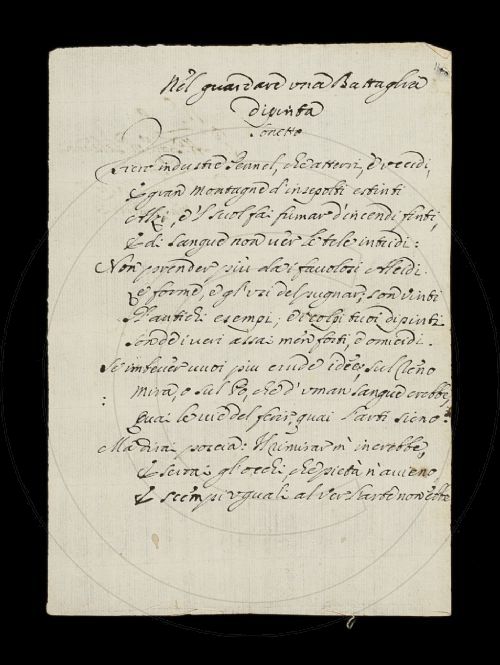 Nel guardare una Battaglia
dipinta
Sonetto
Fiero industre Pennel, che atterri, e uccidi,
E gran montagne d'insepolti estinti
Alzi, e 'l suol fai fumar d'incendi finti,
E di sangue non ver le tele intridi:
Non prender più da i favolosi Alcidi
Le forme, e gl'usi del pugnar, son vinti
Gl'antichi esempi, e i colpi tuoi dipinti
Son de i veri assai men forti, e omicidi.
Se imbever vuoi più crude idee, sul Reno
Mira, o sul Po, che d'uman sangue crebbe,
Quai le vie del ferir, quai l'arti sieno.
Ma dirai poscia: Il rimirar m'increbbe,
E gl'occhi, che pietà n'avieno,
E scempi uguali al ver l'arte non ebbe